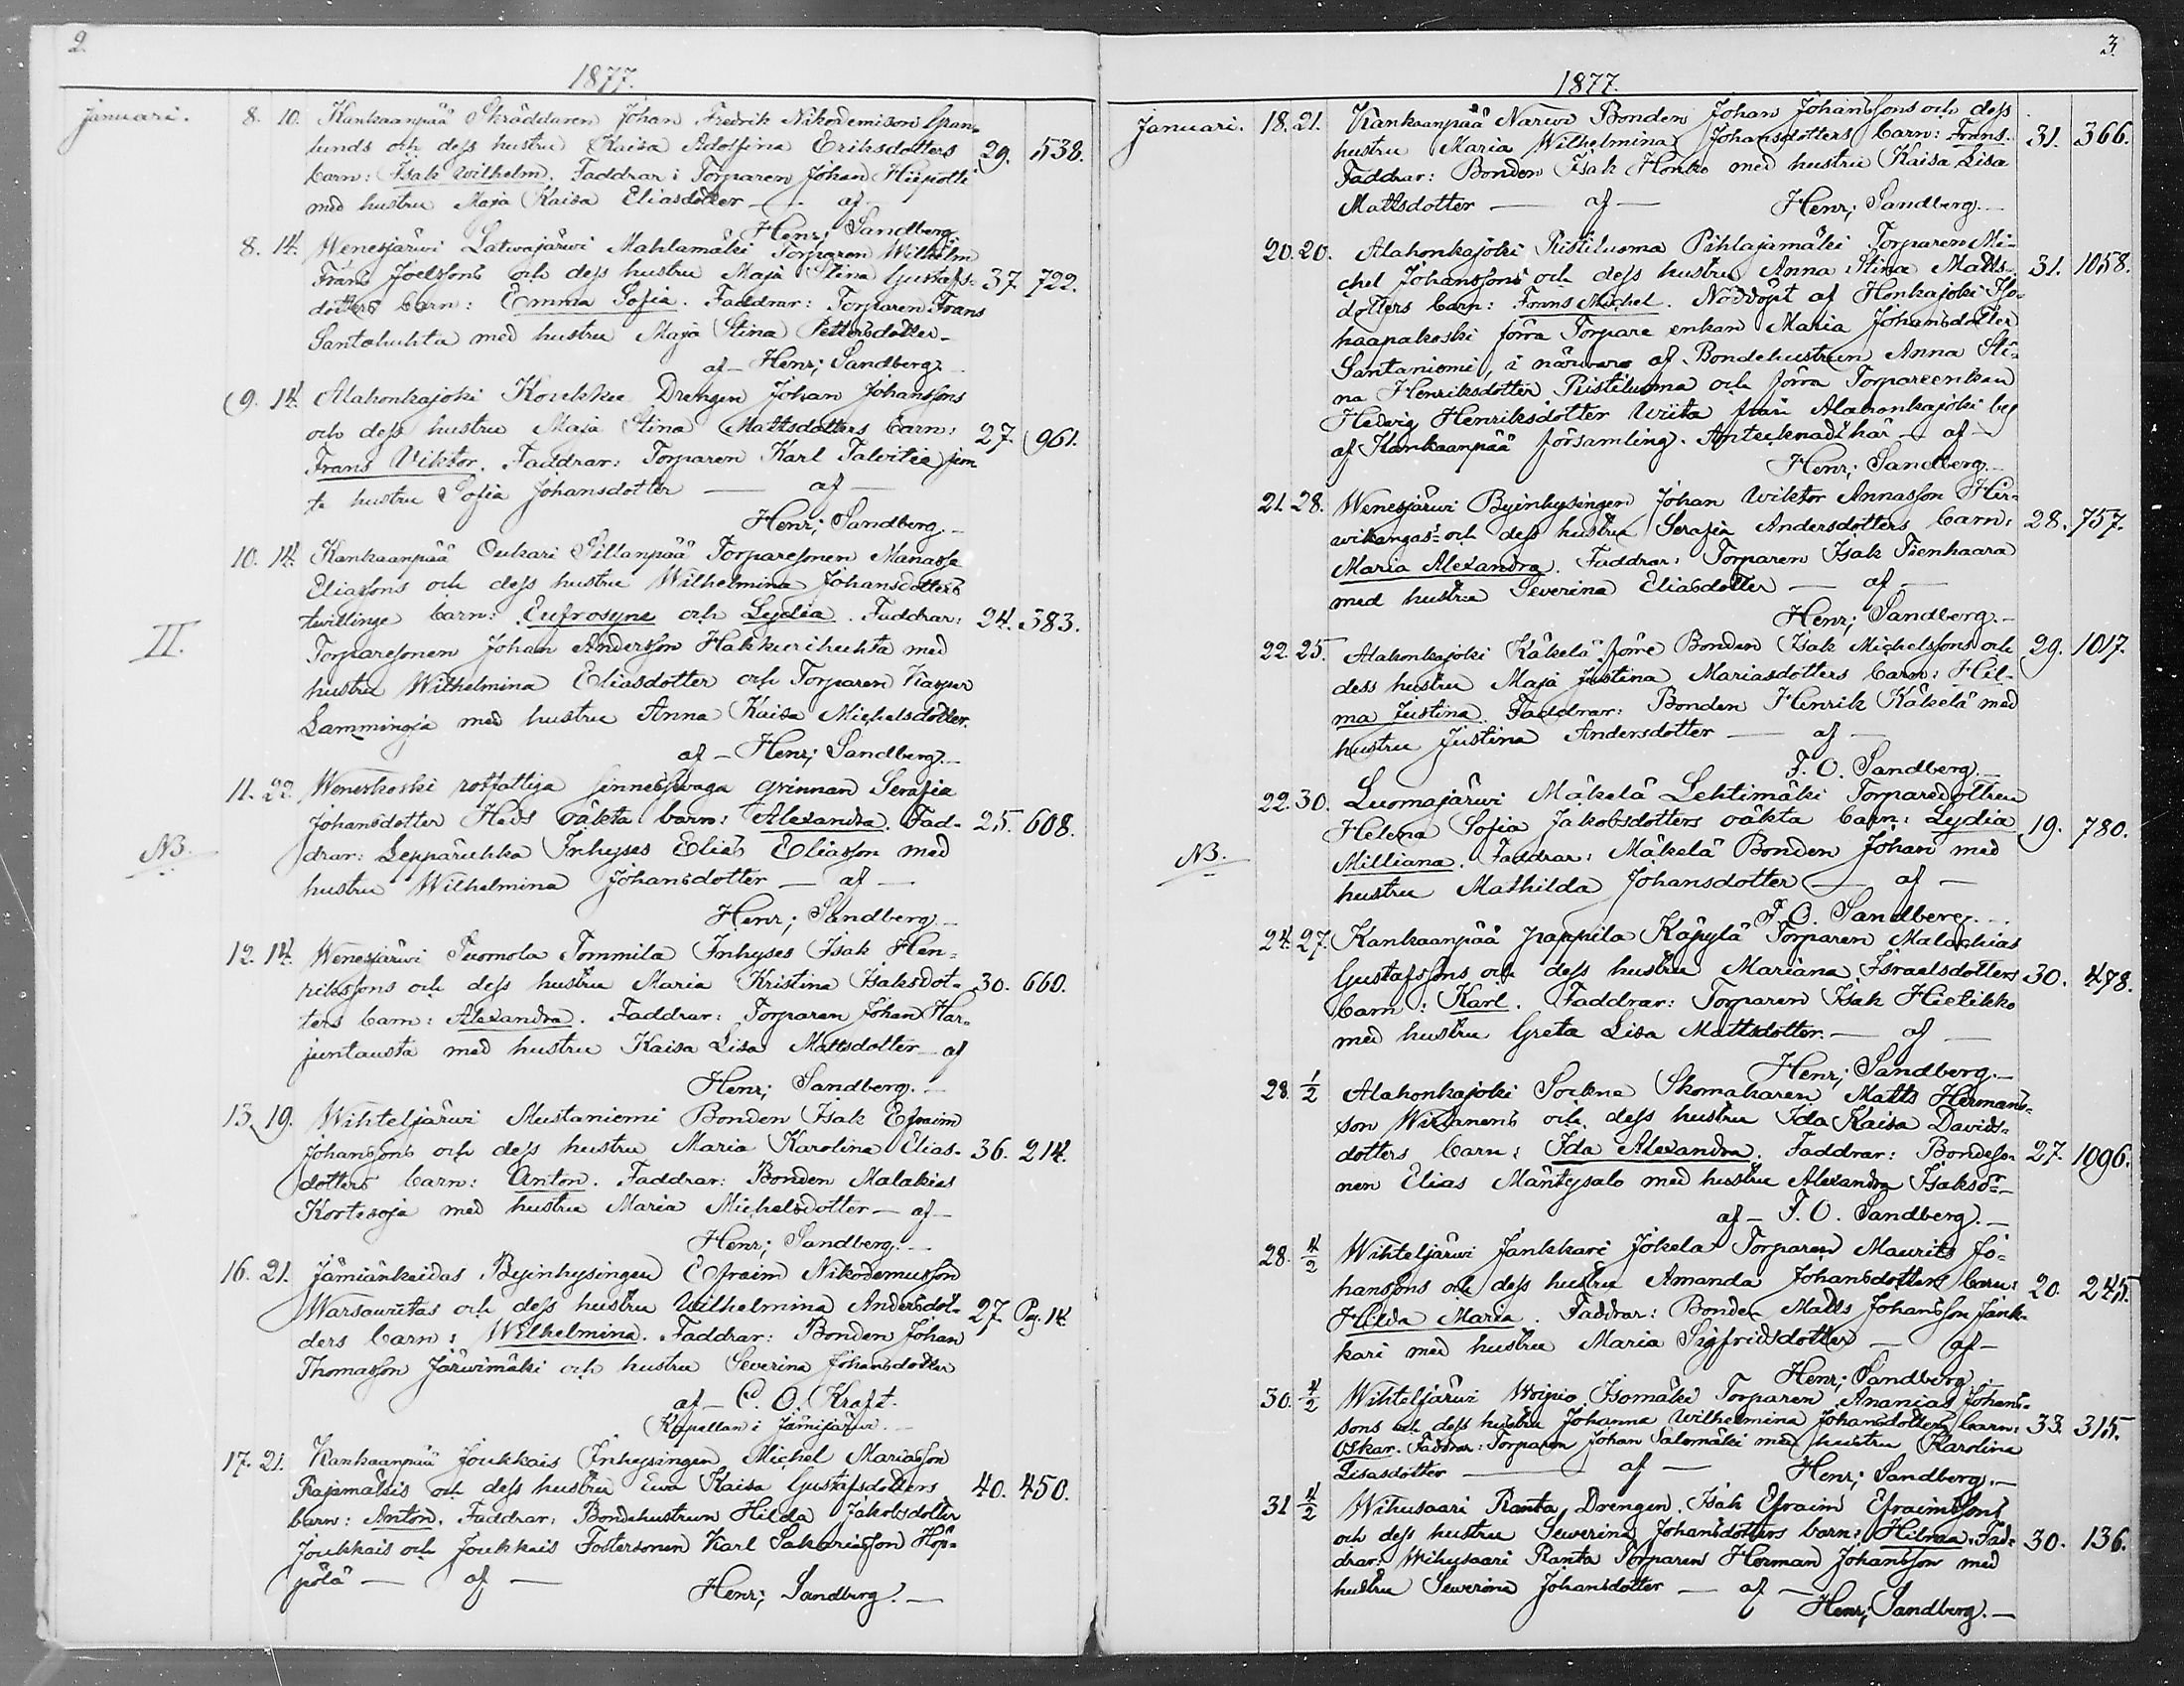 2.
1877.
Januari.
8. 10. Kankaanpää Skräddaren Johan Fredrik Nikodemison Gran-
lunds och dess hustru Kaisa Adolfina Eriksdotters 29. 538.
barn: Isak Wilhelm. Faddrar: Torparen Johan
med hustru Maja Kaisa Eliasdotter — af —
Henr; Sandberg.
8. 14. Wenesjärwi Latwajärwi Mahlamäki Torparen Wilhelm
Frans Joelssons och dess hustru Maja Stina Gustafs- 37. 722.
dotters barn: Emma Sofia. Faddrar: Torparen Frans
Santahuhta med hustru Maja Stina Pettersdotter —
af — Henr; Sandberg.
9. 14. Alahonkajoki Koukku Drengen Johan Johanssons
och dess hustru Maja Stina Mattsdotters barn: 27. 961.
Frans Viktor. Faddrar: Torparen Karl Talvitie jem
te hustru Sofia Johansdotter — af —
Henr; Sandberg. —
10. 14. Kankaanpää Oukari Sillanpää Torparesonen Manasse
Eliasons och dess hustru Wilhelmina Johansdotters
II.
twillinge barn: Eufrosyne och Lydia. Faddrar: 24. 383.
Torparesonen Johan Andersson Hakkurihuhta med
hustru Wilhelmina Eliasdotter och Torparen Kasper
Lamminoja med hustru Anna Kaisa Michelsdotter.
af — Henr; Sandberg. —
11. 22. Weneskoski rotfattiga sinnessvaga qvinnan Serafia
Johansdotter Heds oäkta barn: Alexandra. Fad- 25. 608.
NB.
drar: Leppäruhka Inhyses Elias Eliasson med
hustru Wilhelmina Johansdotter — af —
Henr; Sandberg —
12. 14. Wenesjärwi Tuomola Tommila Inhyses Isak Hen-
rikssons och dess hustru Maria Kristina Isaksdot- 30. 660.
ters barn: Alexandra. Faddrar: Torparen Johan Har-
juntausta med hustru Kaisa Lisa Mattsdotter — af
Henr; Sandberg. —
13. 19. Wihteljärwi Mustaniemi Bonden Isak Efraim
Johanssons och dess hustru Maria Karolina Elias- 36. 214.
dotters barn: Anton. Faddrar: Bonden Malakias
Korteoja med hustru Maria Michelsdotter — af —
Henr; Sandberg. —
16. 21. Jämiänkeidas Byinhysingen Efraim Nikodemusson
Warsauutas och dess hustru Wilhelmina Andersdot- 27. Pag. 14.
ders barn: Wilhelmina. Faddrar: Bonden Johan
Thomasson Järwimäki och hustru Severina Johansdotter
af — C. O. Kraft.
Kapellan i Jämijärwi. —
17. 21. Kankaanpää Joukkais Inhysingen Michel Mariasson
Rajamäkis och dess hustru Ewa Kaisa Gustafsdotters 40. 450.
barn: Anton. Faddrar: Bondehustrun Hilda Jakobsdotter
Joukkais och Joukkais Fostersonen Karl Sakariasson Höp-
pölä — af —
Henr; Sandberg. —
3.
1877.
Januari.
18. 21. Kankaanpää Narwi Bonden Johan Johanssons och dess
hustru Maria Wilhelmina Johansdotters barn: Frans. 31. 366.
Faddrar: Bonden Isak Honko med hustru Kaisa Lisa
Mattsdotter — af —
Henr; Sandberg. —
20. 20. Alahonkajoki Ristiluoma Pihlajamäki Torparen Mi-
chel Johanssons och dess hustru Anna Stina Matts- 31. 1058.
dotters barn: Frans Michel. Nöddöpt af Honkajoki Iso-
haapakoski förra Torpare enkan Maria Johansdotter
Santaniemi, i närvaro af Bondehustrun Anna Sti-
na Henriksdotter Ristiluoma och förra Torpareenkan
Hedvig Henriksdotter Wiita från Alahonkajoki by
af Kankaanpää församling. Antecknadt här — af —
Henr; Sandberg. —
21. 28. Wenesjärwi Byinhysingen Johan Wiktor Annasson Hir-
wikangas's och dess hustru Serafia Andersdotters barn: 28. 757.
Maria Alexandra. Faddrar: Torparen Isak Tienhaara
med hustru Severina Eliasdotter — af —
Henr; Sandberg. —
22. 25. Alahonkajoki Käkelä förre Bonden Isak Michelssons och 29. 1017.
dess hustru Maja Justina Mariasdotters barn: Hil-
ma Justina. Faddrar: Bonden Henrik Käkelä med
hustru Justina Andersdotter — af —
F. O. Sandberg. —
22. 30. Luomajärwi Mäkelä Lehtimäki Torparedottren
Helena Sofia Jakobsdotters oäkta barn: Lydia 19. 780.
NB.
Milliana. Faddrar: Mäkelä Bonden Johan med
hustru Mathilda Johansdotter — af —
F. O. Sandberg. —
24. 27. Kankaanpää Pappila Käpylä Torparen Malachias
Gustafssons och dess hustru Mariana Israelsdotters 30. 478.
barn: Karl. Faddrar: Torparen Isak Hietikko
med hustru Greta Lisa Mattsdotter. — af —
Henr; Sandberg. —
28. 1/2 Alahonkajoki Skomakaren Matts Hermans-
son Wirtanens och dess hustru Ida Kaisa Davids-
dotters barn: Ida Alexandra. Faddrar: Bondeso- 27. 1096.
nen Elias Mäntysalo med hustru Alexandra Isaksdr —
af — F. O. Sandberg. —
28. 4/2 Wihteljärwi Jankkari Jokela Torparen Maurits Jo-
hanssons och dess hustru Amanda Johansdotters barn: 20. 245.
Hilda Maria. Faddrar: Bonden Matts Johansson Jank-
kari med hustru Maria Sigfridsdotter — af —
Henr; Sandberg. —
30. 4/2 Wihteljärwi Woipio Isomäki Torparen Ananias Johans-
sons och dess hustru Johanna Wilhelmina Johansdotters barn: 33. 315.
Oskar. Faddrar: Torparen Johan Salomäki med hustru Karolina
Lisasdotter — af — Henr; Sandberg. —
31 4/2 Wihusaari Ranta, Drengen Isak Efraim Efraimssons
och dess hustru Sewerina Johansdotters barn: Hilma. Fad- 30. 136.
drar: Wihusaari Ranta Torparen Herman Johansson med
hustru Sewerina Johansdotter — af —
Henr; Sandberg. —